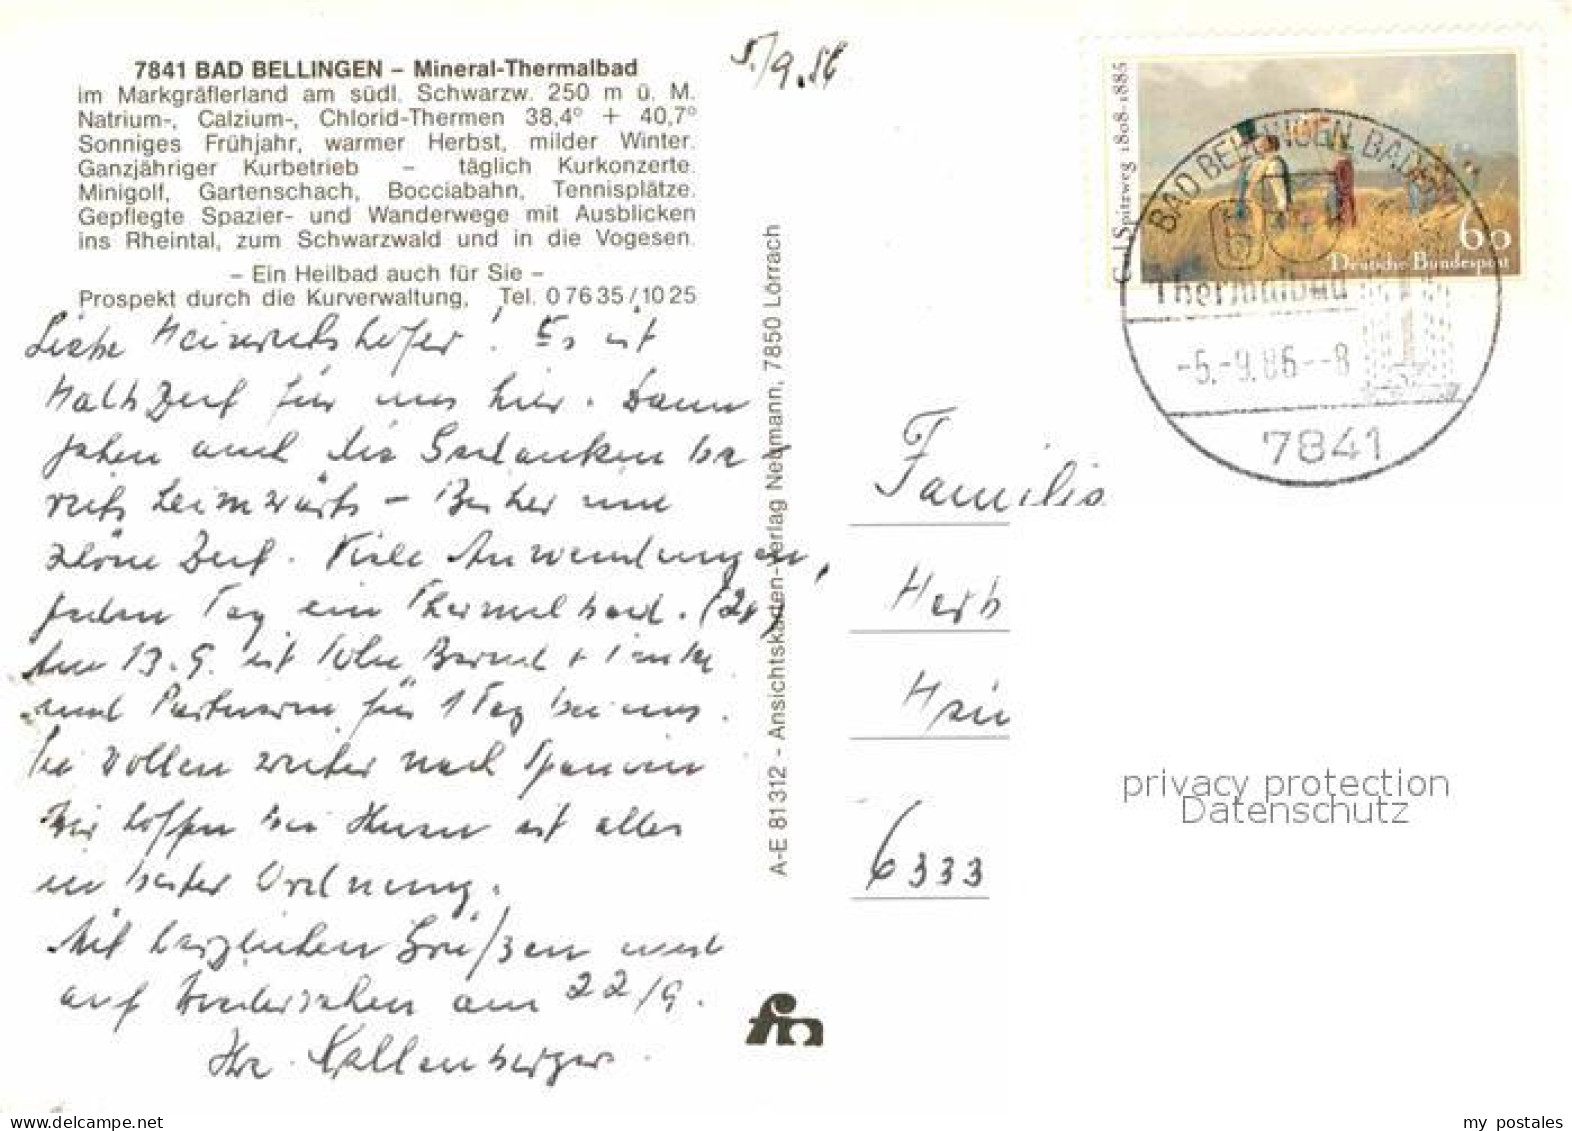 7841 BAD BELLINGEN – Mineral-Thermalbad
im Markgräflerland am südl. Schwarzw. 250 m ü. M.
Natrium-, Calzium-, Chlorid-Thermen 38,4° + 40,7°
Sonniges Frühjahr, warmer Herbst, milder Winter.
Ganzjähriger Kurbetrieb – täglich Kurkonzerte.
Minigolf, Gartenschach, Bocciabahn, Tennisplätze.
Gepflegte Spazier- und Wanderwege mit Ausblicken
ins Rheintal, zum Schwarzwald und in die Vogesen.
– Ein Heilbad auch für Sie –
Prospekt durch die Kurverwaltung, Tel. 0 76 35 / 10 25
5./9.86
Liebe ! Es ist
Halbzeit für uns hier. Dann
gehen auch die Gedanken be-
reits heimwärts – Bisher eine
schöne Zeit. Viele Anwendungen,
jeden Tag ein Thermalbad. (2x)
Am 13.9. ist Sohn Bernd +
und Partnerin für 1 Tag bei uns.
Sie wollen weiter nach Spanien
Wir hoffen bei Ihnen ist alles
in bester Ordnung.
Mit herzlichen Grüßen und
auf Wiedersehen am 22/9.
Ihre Kallenberger
A-E 81 312 - Ansichtskarten-Verlag Neumann, 7850 Lörrach
fm
C. Spitzweg 1808-1885
60
Deutsche Bundespost
BAD BELLINGEN, BADEN
Thermalbad
-5.-9.86--8
7841
Familie
Herb
6333
privacy protection
Datenschutz
www.delcampe.net
my_postales